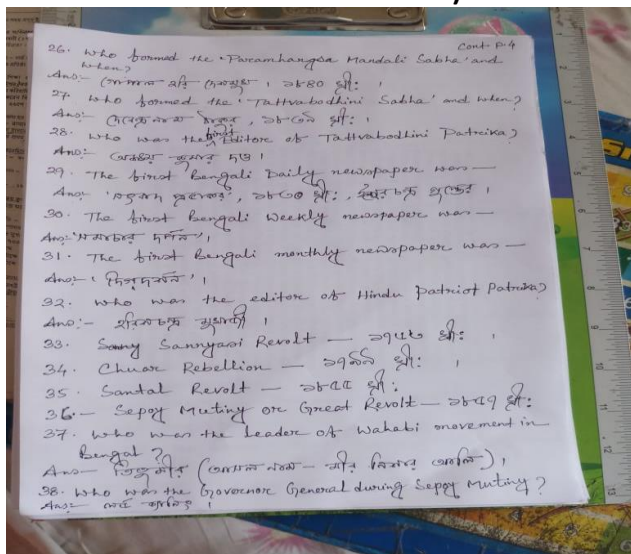 Cont. P.4
26. Who formed the 'Paramhangsa Mandali Sabha' and
when?
Ans:- গোপাল হরি দেশমুখ, ১৮৪০ খ্রীঃ ।
27. Who formed the 'Tattvabodhini Sabha' and when?
Ans:- দেবেন্দ্রনাথ ঠাকুর, ১৮৩৯ খ্রীঃ ।
28. Who was the first Editor of Tattvabodhini Patrika?
Ans:- অক্ষয় কুমার দত্ত ।
29. The first Bengali Daily newspaper was —
Ans:- 'সংবাদ প্রভাকর', খ্রীঃ, ঈশ্বরচন্দ্র গুপ্তের ।
30. The first Bengali weekly newspaper was —
Ans:- 'সমাচার দর্পন' ।
31. The first Bengali monthly newspaper was —
Ans:- 'দিগ্দর্শন' ।
32. Who was the editor of Hindu Patriot Patrika?
Ans:- হরিশচন্দ্র মুখার্জী ।
33. Sannyasi Revolt — খ্রীঃ ।
34. Chuar Rebellion — ১৭৯৯ খ্রীঃ ।
35. Santal Revolt — ১৮৫৫ খ্রীঃ
36. — Sepoy Mutiny or Great Revolt — ১৮৫৭ খ্রীঃ ।
37. Who was the leader of Wahabi movement in
Bengal?
Ans — তিতুমীর (আসল নাম — মীর নিসার আলি) ।
38. Who was the Governor General during Sepoy Mutiny?
Ans:- লর্ড ক্যানিং ।